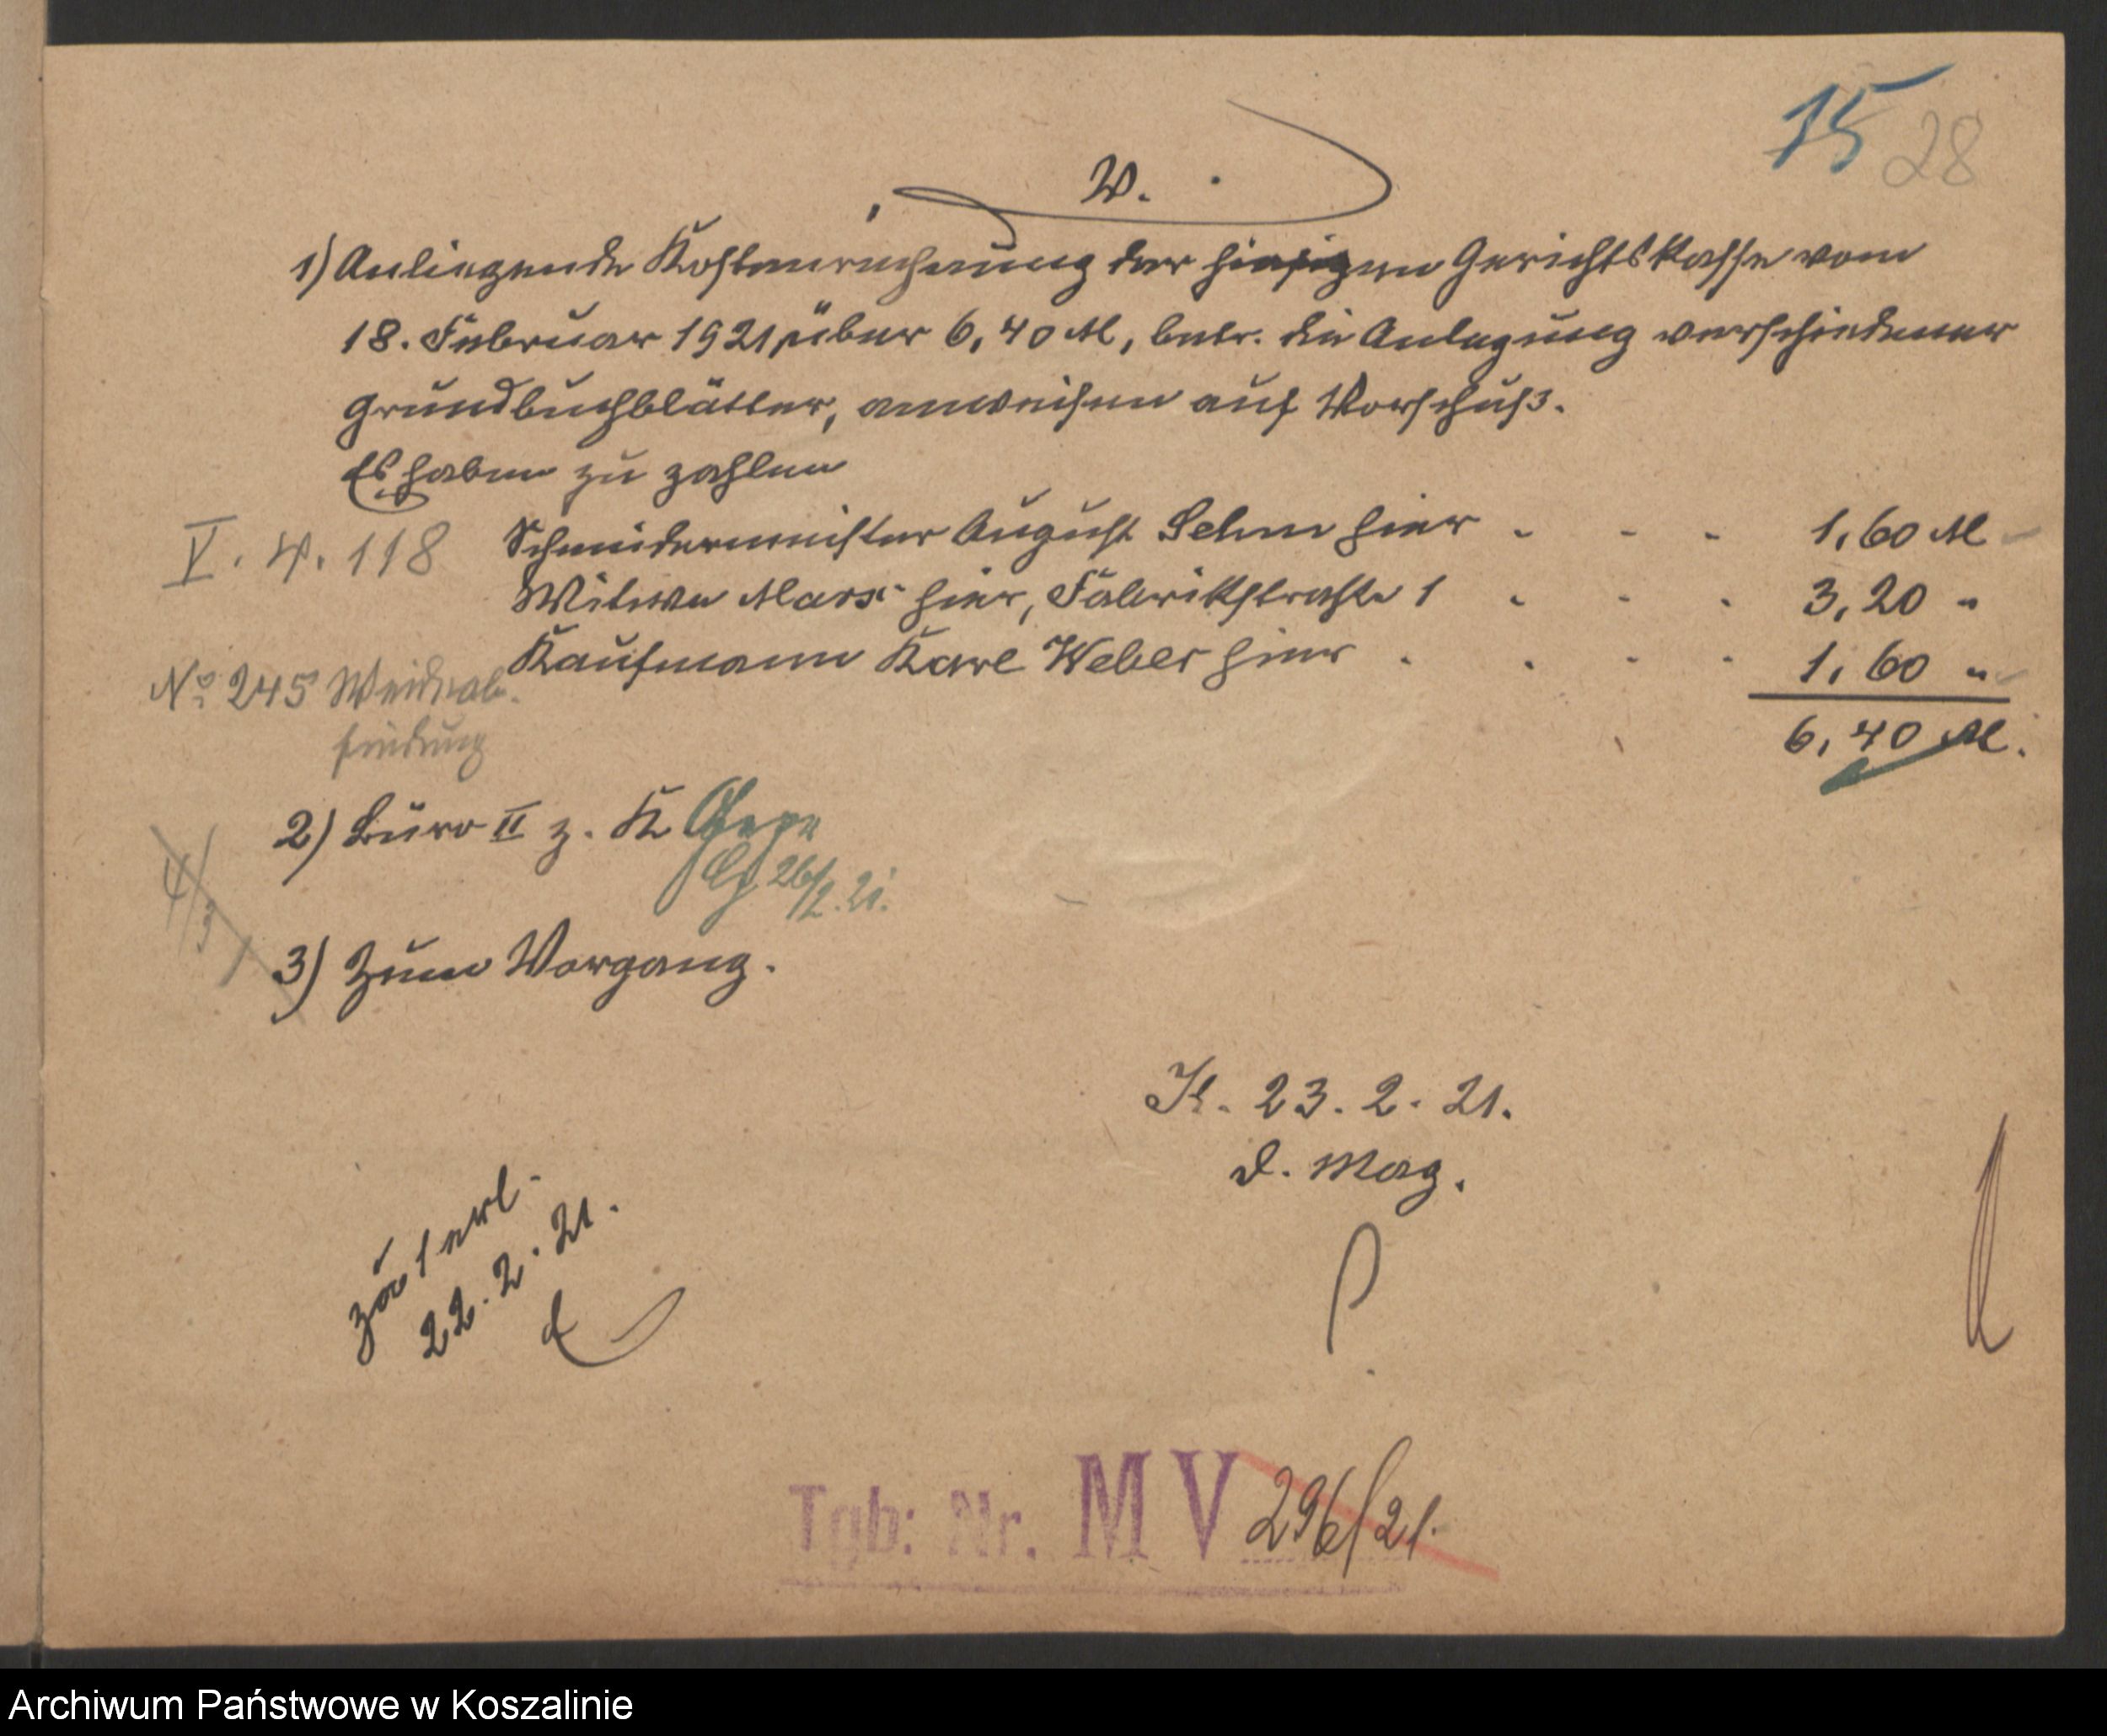 15 28
V.
1) Anliegende Kostenrechnung der hiesigen Gerichtskasse vom
18. Februar 1921 über 6,40 M, betr. die Anlegung verschiedener
Grundbuchblätter, anweisen auf Vorschuß.
Es haben zu zahlen
V. 4. 118
Schneidermeister August Sehm hier - - - 1,60 M
Witwe Marx hier, Fabrikstraße 1 - - - 3,20 "
No 245 Weideab-
findung
Kaufmann Karl Weber hier - - - - 1,60 "
6,40 M.
2) Büro II z. K
26/2.21.
4/3
3) Zum Vorgang.
K. 23. 2. 21.
D. Mag.
P.
zu 1 erl.
22. 2. 21.
Tgb: Nr. M V 296/21.
Archiwum Państwowe w Koszalinie